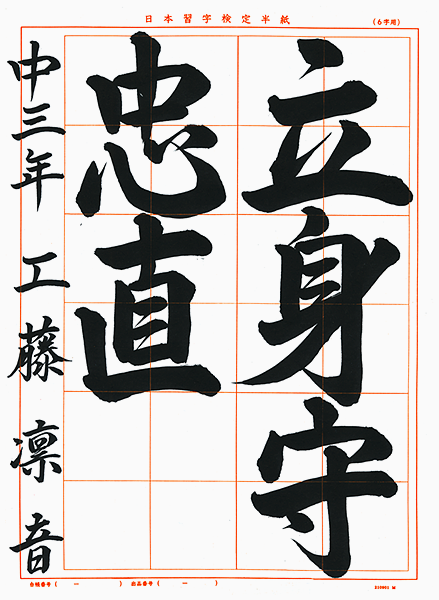 日本習字検定半紙
(6字用)
立身守
忠直
中三年 工藤凛音
合格番号(　ー　) 出品番号(　ー　)